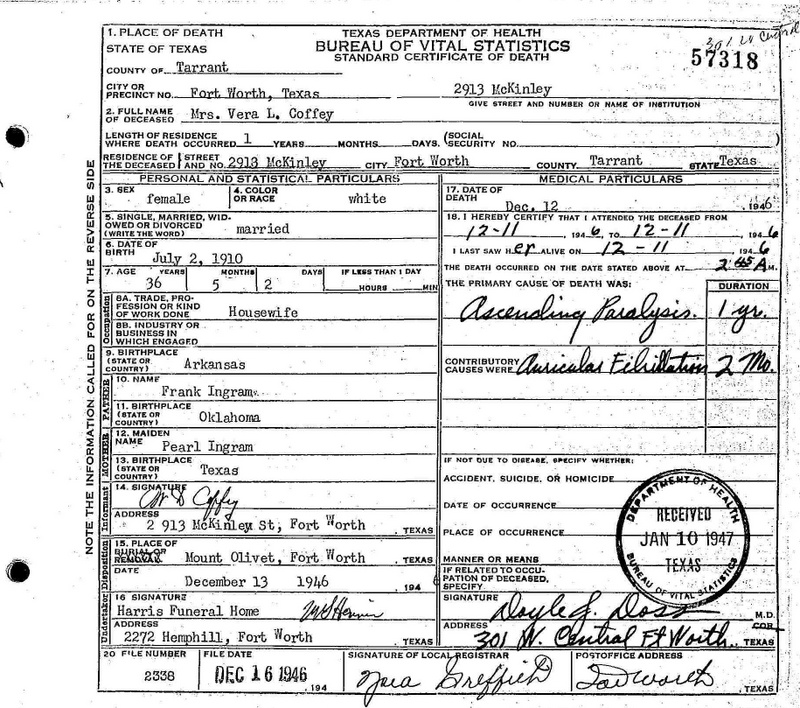 1. PLACE OF DEATH
STATE OF TEXAS
COUNTY OF Tarrant
TEXAS DEPARTMENT OF HEALTH
BUREAU OF VITAL STATISTICS
STANDARD CERTIFICATE OF DEATH
57318
CITY OR PRECINCT NO. Fort Worth, Texas
2913 McKinley
GIVE STREET AND NUMBER OR NAME OF INSTITUTION
2. FULL NAME OF DECEASED Mrs. Vera L. Coffey
LENGTH OF RESIDENCE WHERE DEATH OCCURRED 1 YEARS MONTHS DAYS. (SOCIAL SECURITY NO. )
RESIDENCE OF THE DECEASED (STREET AND NO. 2913 McKinley CITY Fort Worth COUNTY Tarrant STATE Texas
NOTE THE INFORMATION CALLED FOR ON THE REVERSE SIDE
PERSONAL AND STATISTICAL PARTICULARS
3. SEX female
4. COLOR OR RACE white
5. SINGLE, MARRIED, WIDOWED OR DIVORCED (WRITE THE WORD) married
6. DATE OF BIRTH July 2, 1910
7. AGE YEARS MONTHS DAYS IF LESS THAN 1 DAY
36 5 2 HOURS MIN
Occupation
8A. TRADE, PROFESSION OR KIND OF WORK DONE Housewife
8B. INDUSTRY OR BUSINESS IN WHICH ENGAGED
9. BIRTHPLACE (STATE OR COUNTRY) Arkansas
FATHER
10. NAME Frank Ingram
11. BIRTHPLACE (STATE OR COUNTRY) Oklahoma
MOTHER
12. MAIDEN NAME Pearl Ingram
13. BIRTHPLACE (STATE OR COUNTRY) Texas
Informant
14. SIGNATURE
ADDRESS 2 913 McKinley St, Fort Worth TEXAS
Disposition
15. PLACE OF BURIAL OR REMOVAL Mount Olivet, Fort Worth TEXAS
DATE December 13 1946 194
Undertaker
16 SIGNATURE Harris Funeral Home
ADDRESS 2272 Hemphill, Fort Worth TEXAS
MEDICAL PARTICULARS
17. DATE OF DEATH Dec. 12 , 1946
18. I HEREBY CERTIFY THAT I ATTENDED THE DECEASED FROM
12-11 , 1946, TO 12-11 , 1946
I LAST SAW Her ALIVE ON 12-11 , 1946
THE DEATH OCCURRED ON THE DATE STATED ABOVE AT 2:45 A M.
THE PRIMARY CAUSE OF DEATH WAS: DURATION
Ascending Paralysis. 1 yr.
CONTRIBUTORY CAUSES WERE Auricular Fibrillation 2 Mo.
IF NOT DUE TO DISEASE, SPECIFY WHETHER:
ACCIDENT, SUICIDE, OR HOMICIDE
DATE OF OCCURRENCE
PLACE OF OCCURRENCE
MANNER OR MEANS
IF RELATED TO OCCUPATION OF DECEASED, SPECIFY
DEPARTMENT OF HEALTH
RECEIVED
JAN 10 1947
TEXAS
BUREAU OF VITAL STATISTICS
SIGNATURE Doyle J. Doss M.D.
COR
ADDRESS 301 W. Central Ft Worth. TEXAS
20 FILE NUMBER 2338
FILE DATE DEC 16 1946 , 194
SIGNATURE OF LOCAL REGISTRAR
POSTOFFICE ADDRESS